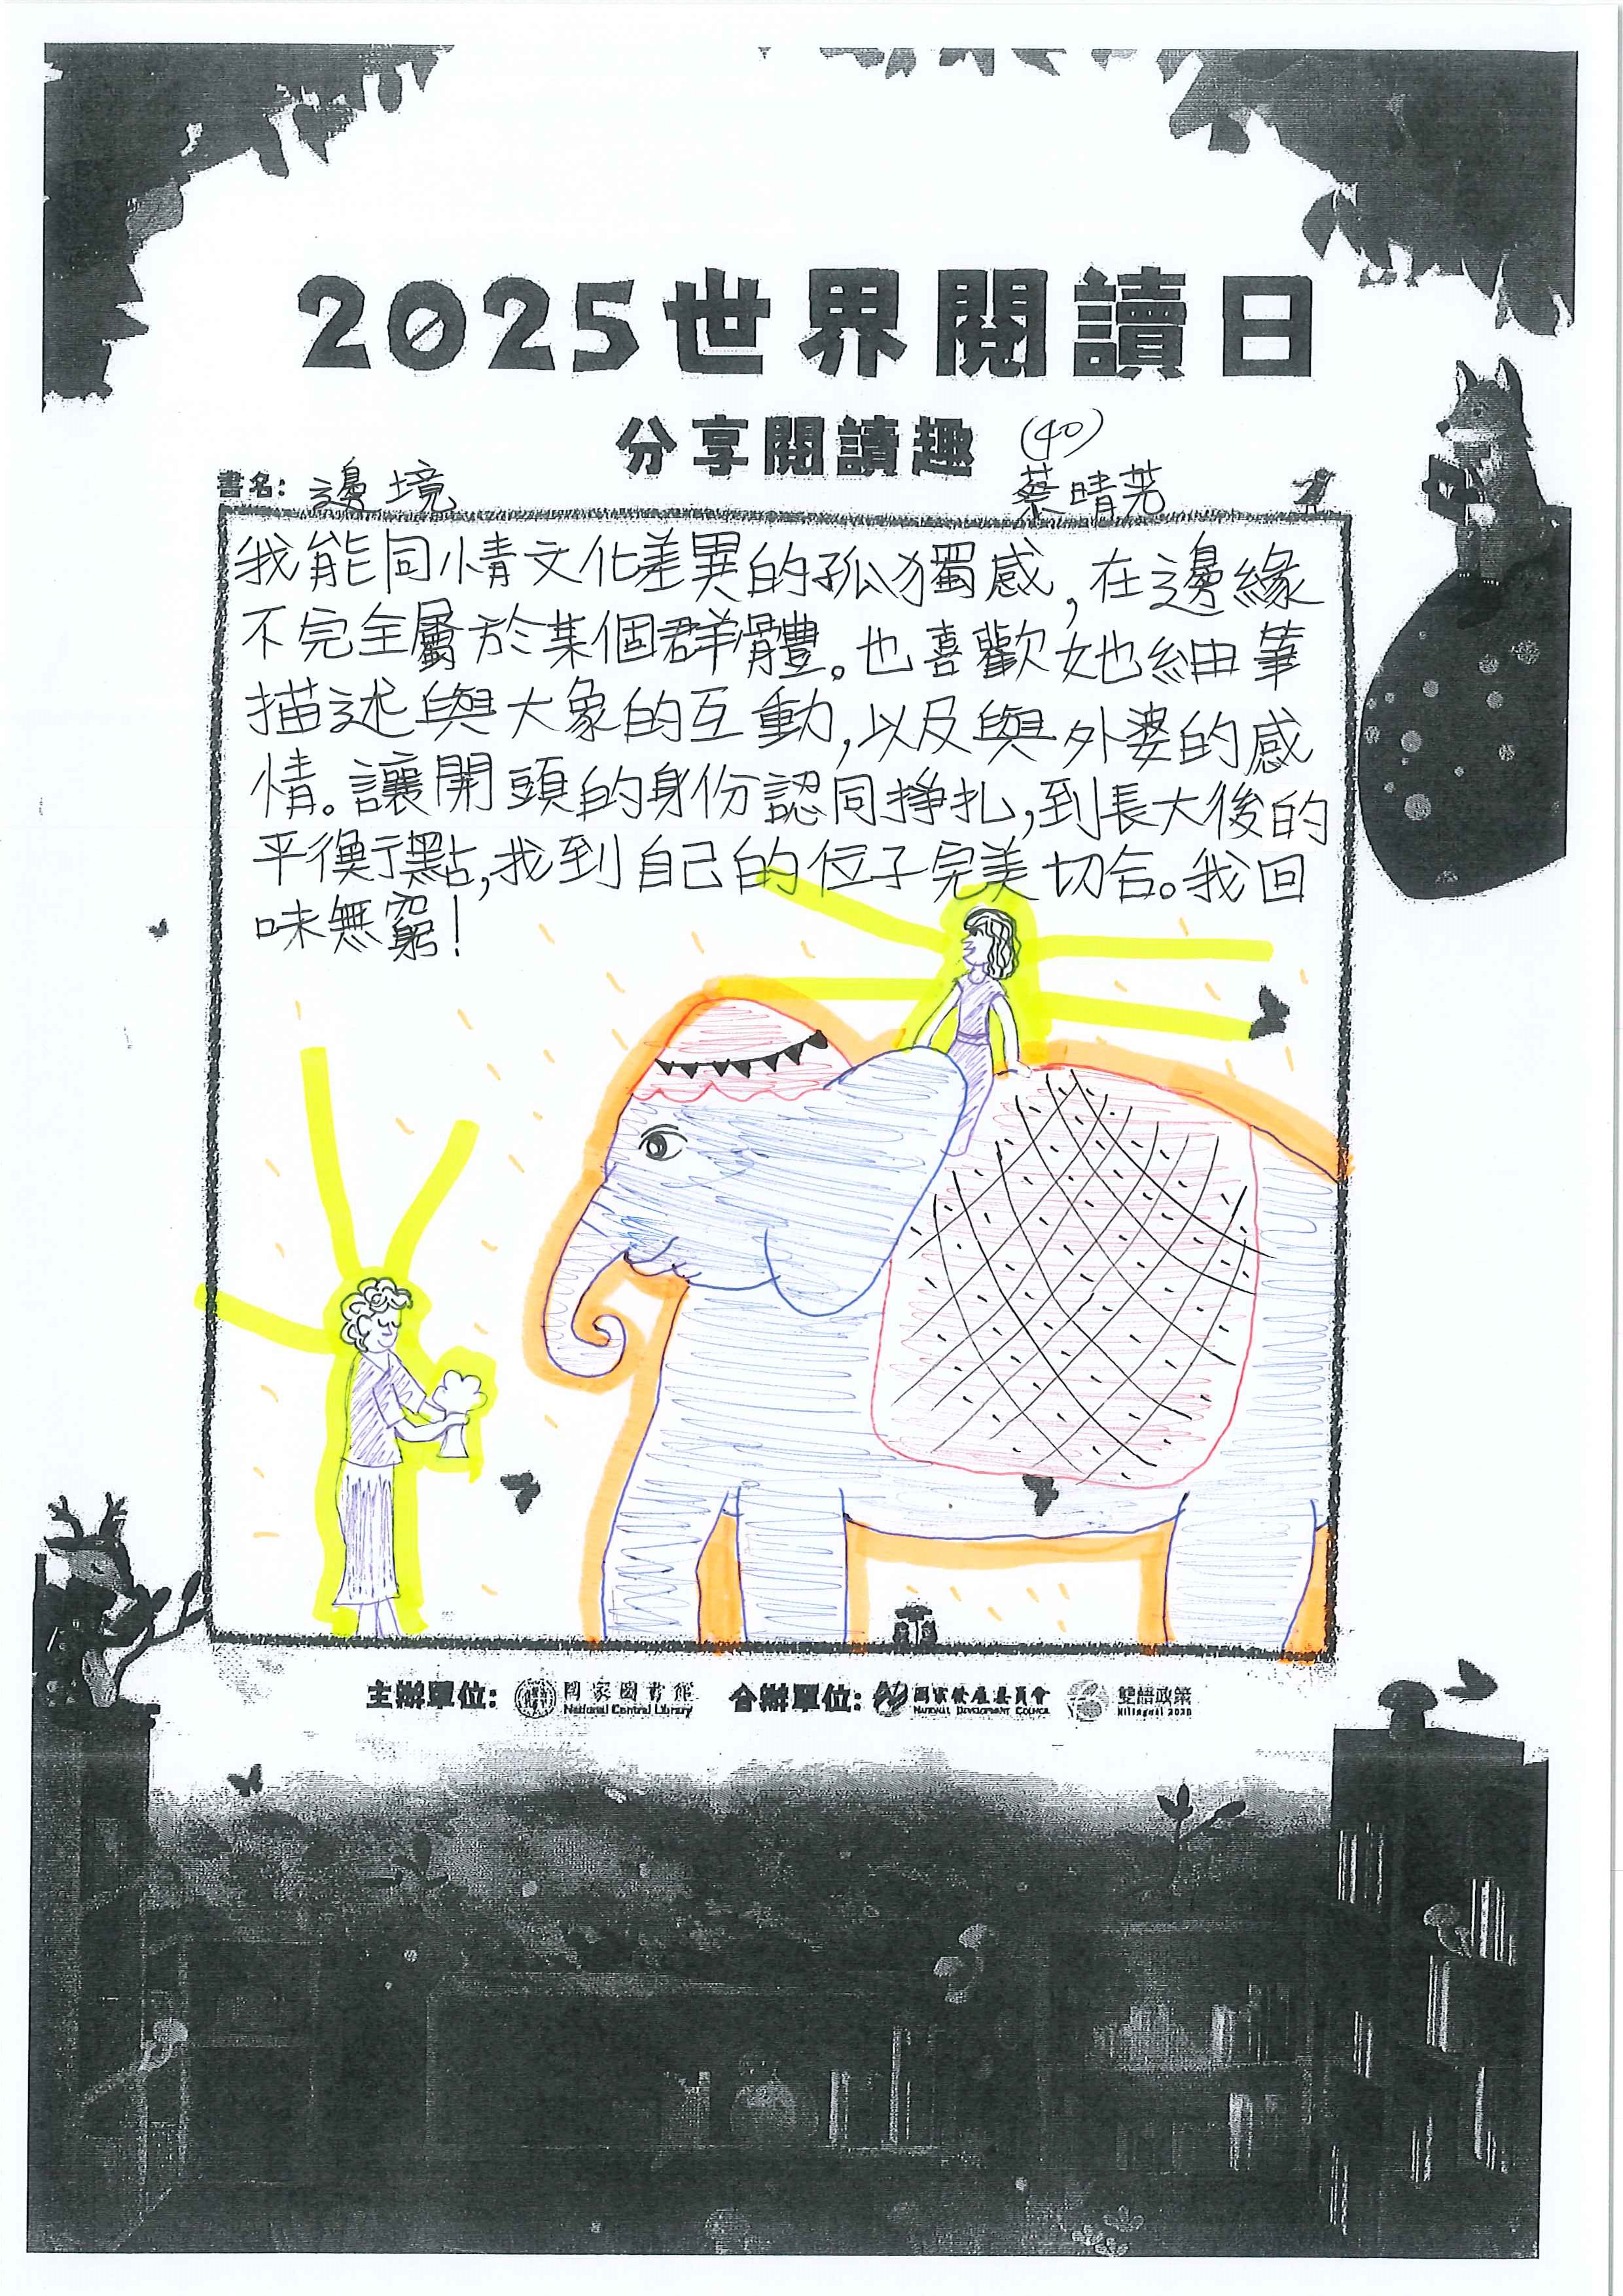 2025世界閱讀日
分享閱讀趣
(40)
書名: 邊境
蔡晴芳
我能同情文化差異的孤獨感,在邊緣
不完全屬於某個群體。也喜歡她細筆
描述與大象的互動,以及與外婆的感
情。讓開頭的身份認同掙扎,到長大後的
平衡點,找到自己的位子完美切合。我回
味無窮!
主辦單位: 國家圖書館 National Central Library 合辦單位: 國家發展委員會 NATIONAL DEVELOPMENT COUNCIL 雙語政策 Bilingual 2030